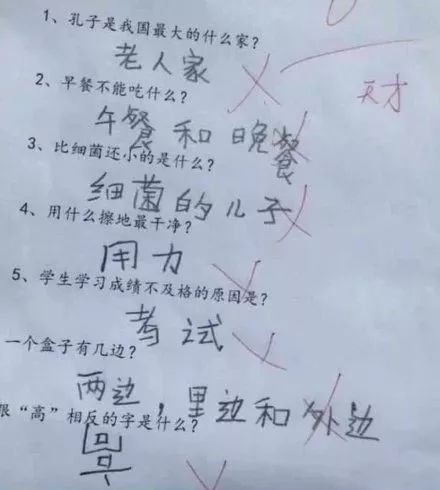 1、孔子是我国最大的什么家?
老人家
天才
2、早餐不能吃什么?
午餐和晚餐
3、比细菌还小的是什么?
细菌的儿子
4、用什么擦地最干净?
用力
5、学生学习成绩不及格的原因是?
考试
一个盒子有几边?
两边，里边和外边
跟“高”相反的字是什么?